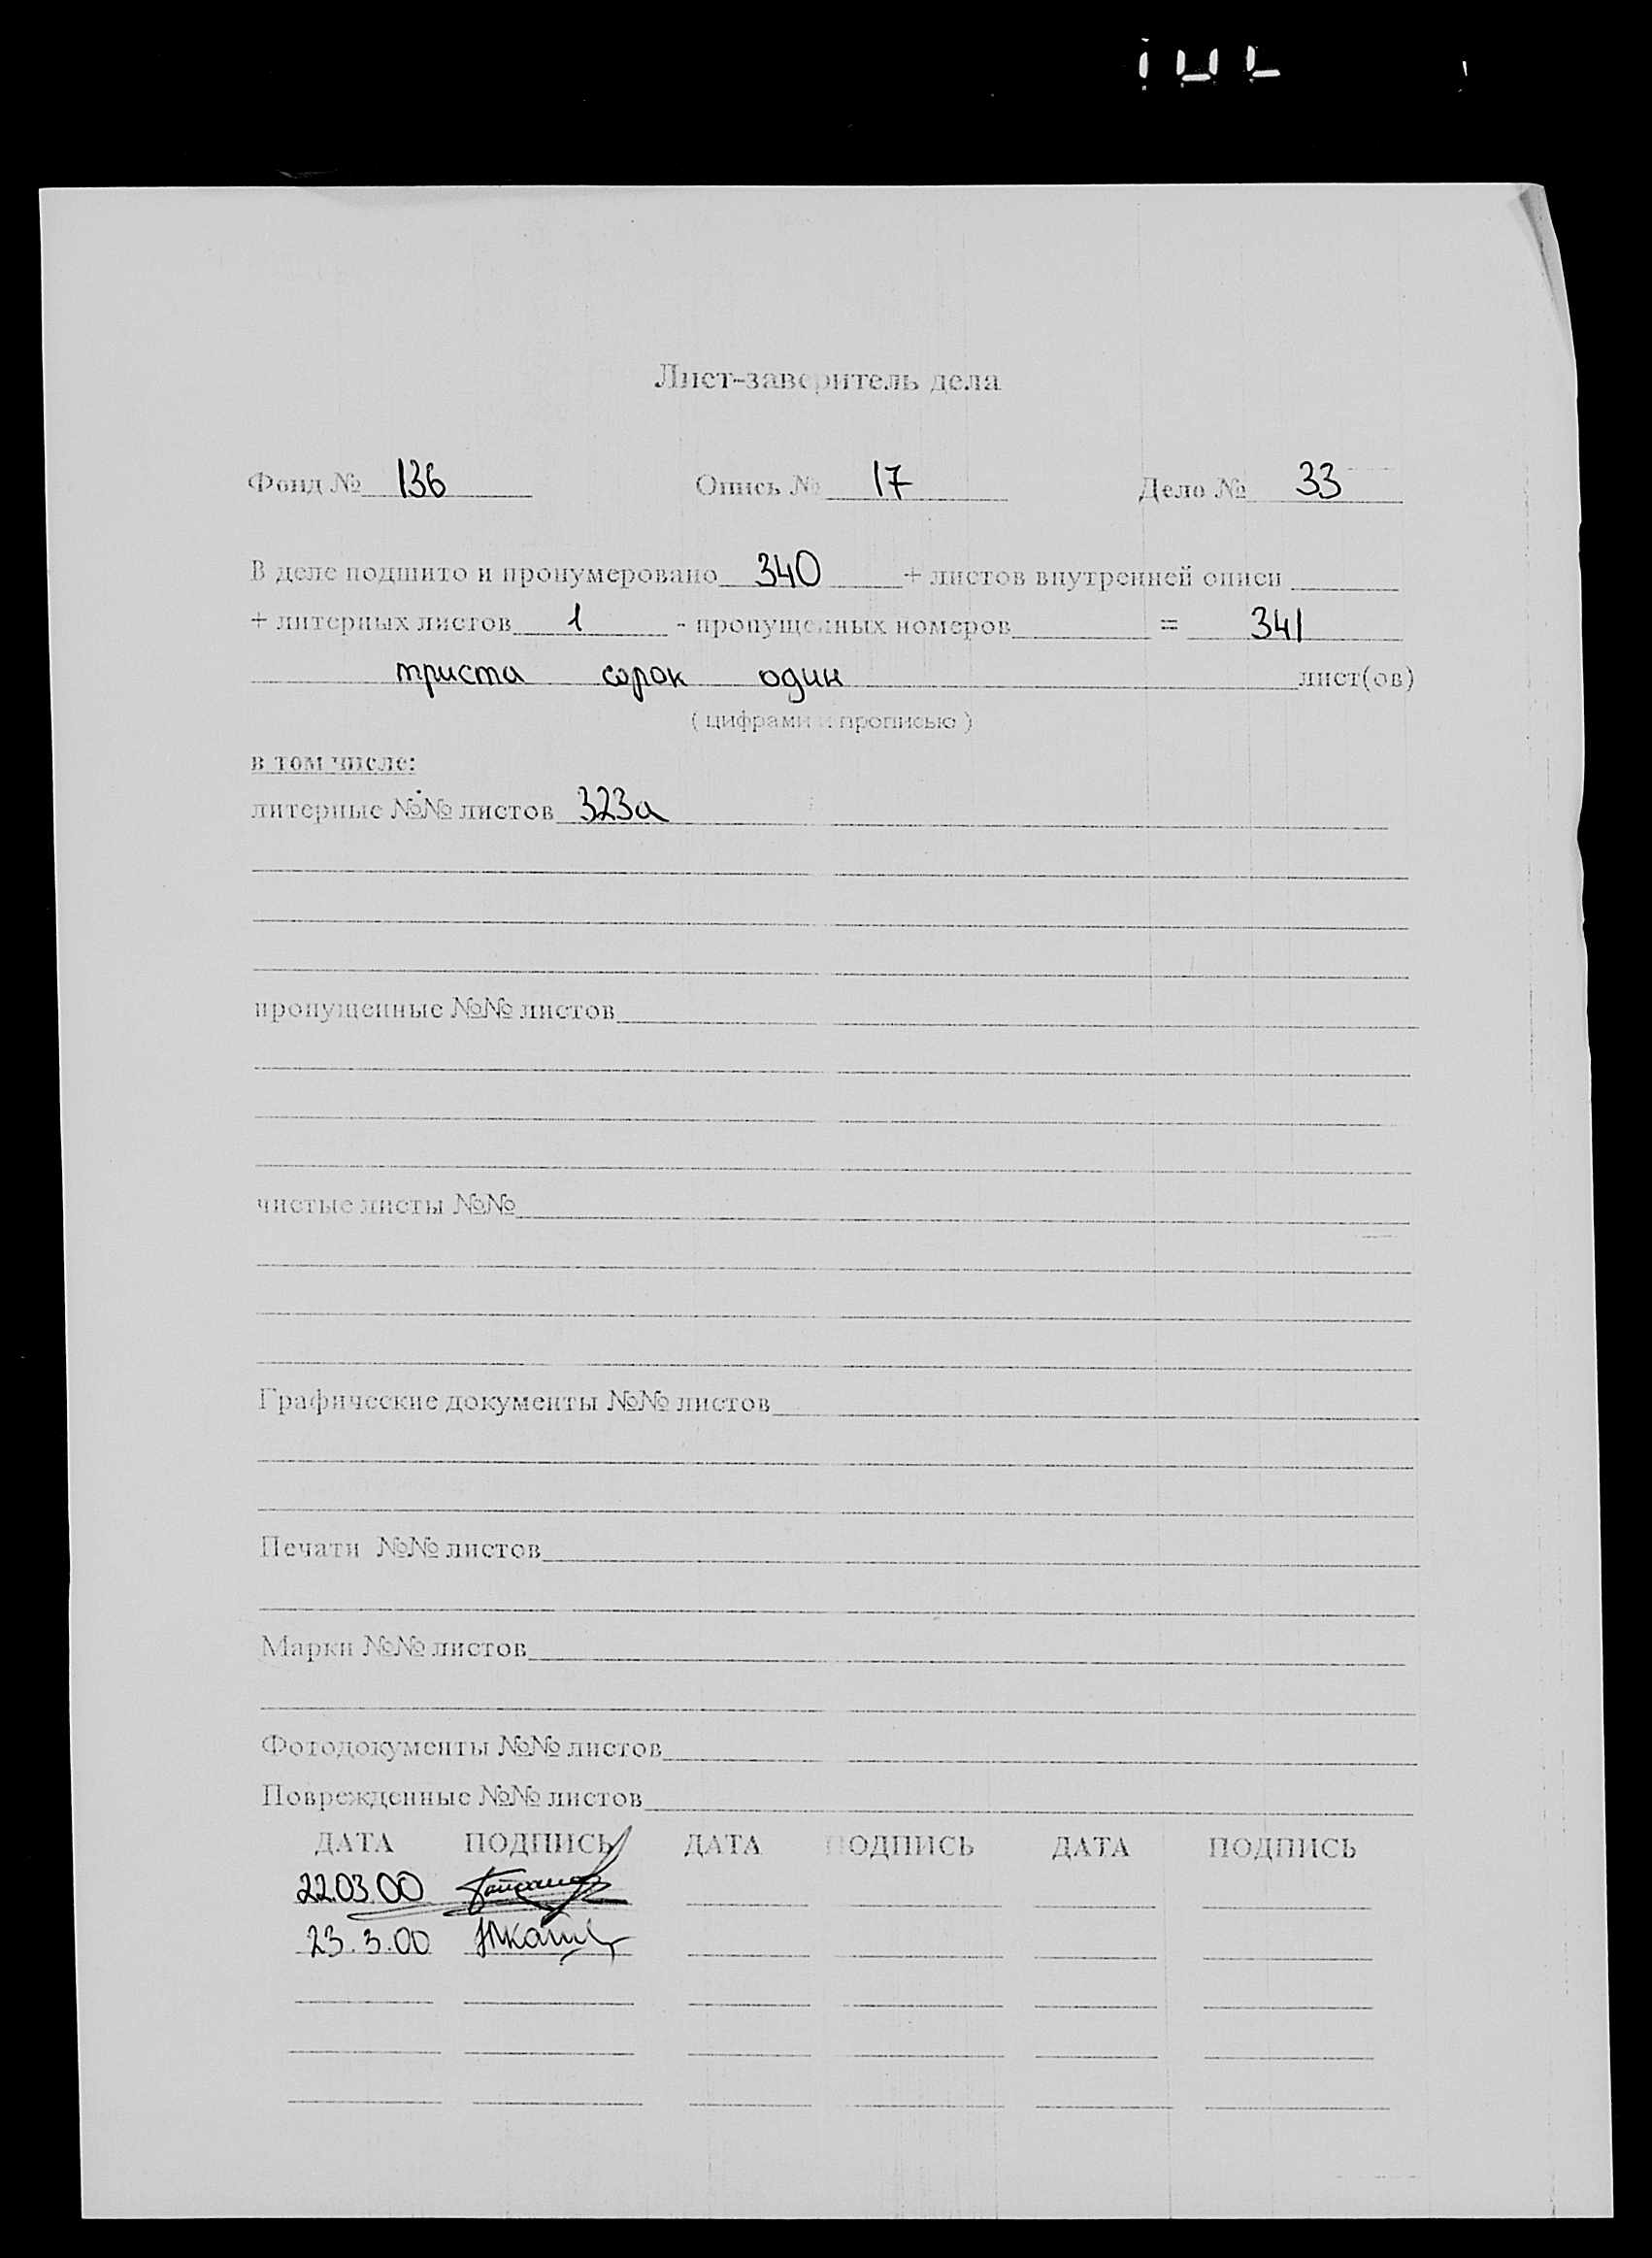 Лист-заверитель дела
Фонд № 136 Опись № 17 Дело № 33
В деле подшито и пронумеровано 340 + листов внутренней описи
+ литерных листов 1 - пропущенных номеров = 341
триста сорок один лист(ов)
( цифрами и прописью )
в том числе:
литерные №№ листов 323а
пропущенные №№ листов
чистые листы №№
Графические документы №№ листов
Печати №№ листов
Марки №№ листов
Фотодокументы №№ листов
Поврежденные №№ листов
ДАТА ПОДПИСЬ ДАТА ПОДПИСЬ ДАТА ПОДПИСЬ
22.03.00
23.3.00